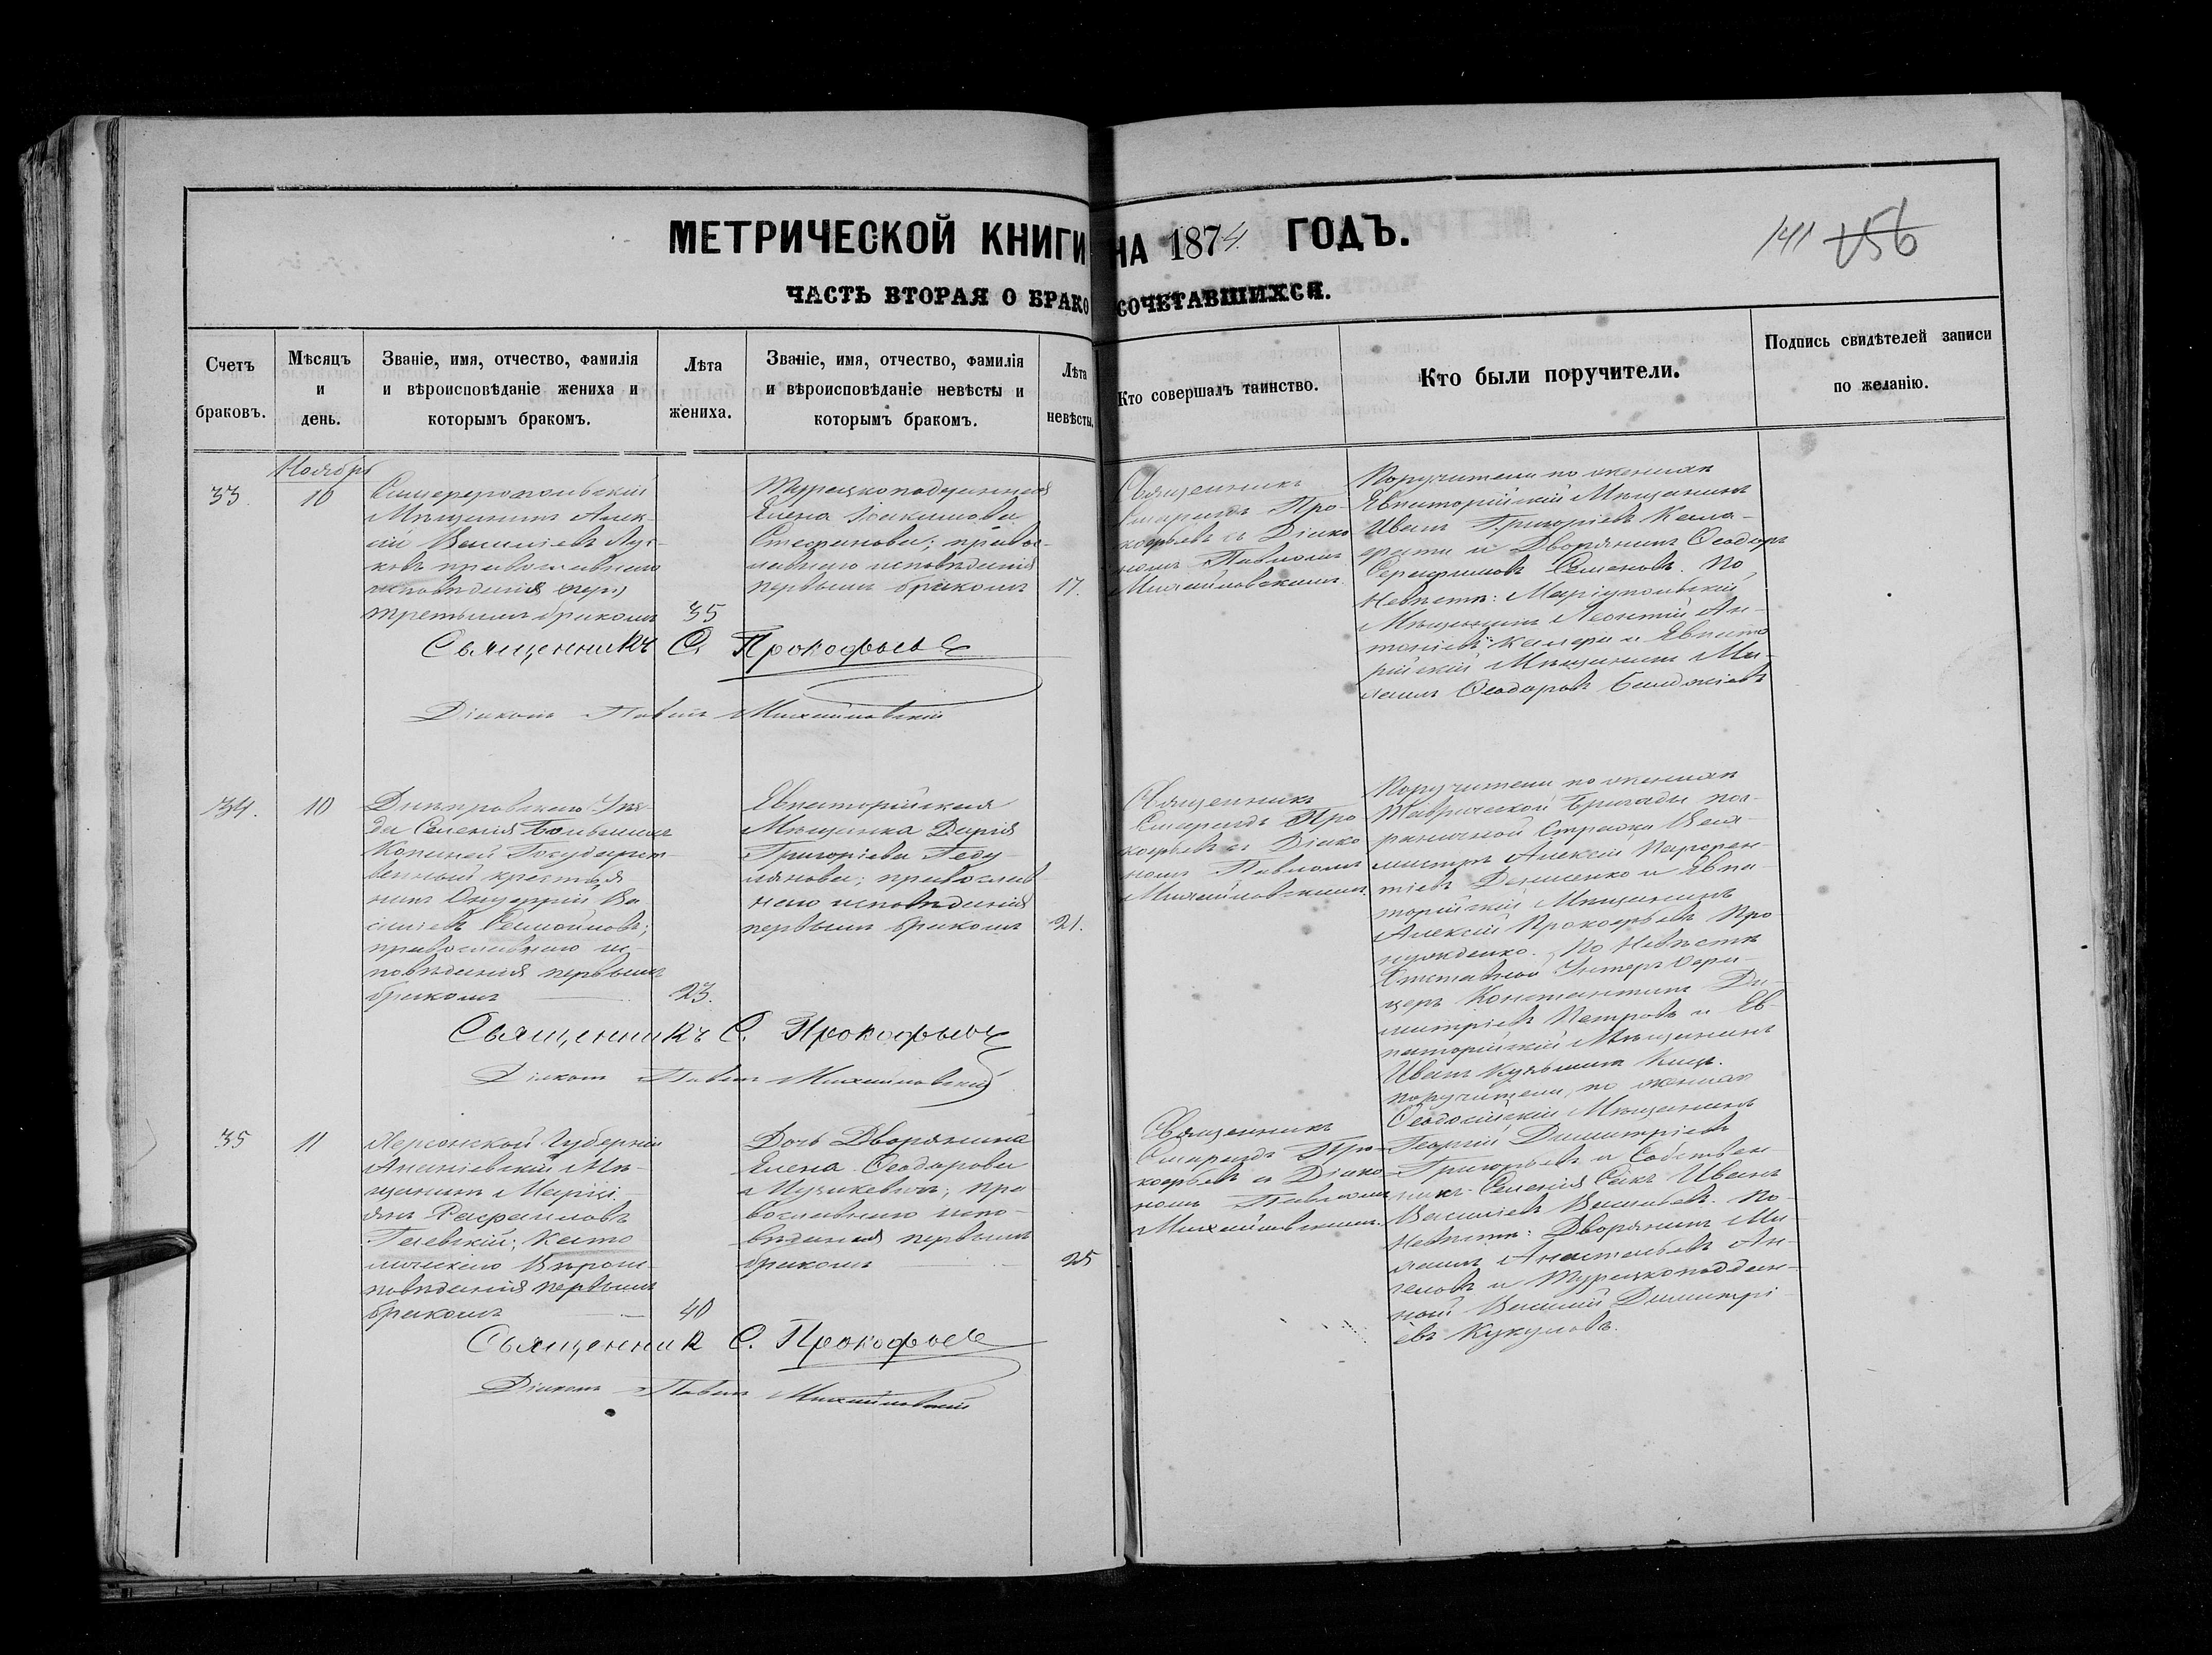 МЕТРИЧЕСКОЙ КНИГИ НА 1874 ГОДЪ.
141 156
ЧАСТЬ ВТОРАЯ О БРАКОСОЧЕТАВШИХСЯ.
Счетъ браковъ.
Мѣсяцъ и день.
Званіе, имя, отчество, фамилія и вѣроисповѣданіе жениха и которымъ бракомъ.
Лѣта жениха.
Званіе, имя, отчество, фамилія и вѣроисповѣданіе невѣсты и которымъ бракомъ.
Лѣта невѣсты.
Кто совершалъ таинство.
Кто были поручители.
Подпись свидѣтелей записи по желанію.
Ноябрь
33. 10
Симферопольскій
Мѣщанинъ Алек-
сій Василіевъ
православнаго
исповѣданія
третьимъ бракомъ
35
Турецкоподданная
Елена Іоакимова
Стефанова; правос-
лавнаго исповѣданія
первымъ бракомъ
17.
Священникъ
Смарагдъ Про-
кофьевъ съ Діако
номъ Павломъ
Михайловскимъ.
Поручители по женихѣ
Евпаторійскій Мѣщанинъ
Иванъ Григоріевъ
и Дворянинъ Ѳеодоръ
Серафимовъ Семеновъ. По
Невѣстѣ: Маріупольскій
Мѣщанинъ Леонтій Ан-
тоніевъ и Евпато
рійскій Мѣщанинъ Ми-
хаилъ Ѳеодоровъ
Священникъ С. Прокофьевъ
Діаконъ Павелъ Михайловскій
34. 10
Днѣпровскаго Уѣз-
да Селенія Большие
Копаней Государст-
венный крестья-
нинъ Онуфрій Ва
силіевъ Самойловъ;
православнаго ис-
повѣданія первымъ
бракомъ
23.
Евпаторійская
Мѣщанка Дарія
Григоріева
православ
наго исповѣданія
первымъ бракомъ
21.
Священникъ
Смарагдъ Про
кофьевъ съ Діако
номъ Павломъ
Михайловскимъ.
Поручители по женихѣ
Таврической Бригады пог-
раничной Стражи Вах-
мистръ Алексій Парфен-
тіевъ Денисенко и Евпа-
торійскій Мѣщанинъ
Алексій Прокофьевъ Про
По Невѣстѣ
Отставной Унтеръ Офи-
церъ Константинъ Ди-
митріевъ Петровъ и Ев-
паторійскій Мѣщанинъ
Иванъ Кузьминъ
Священникъ С. Прокофьевъ
Діаконъ Павелъ Михайловскій
35 11
Херсонской Губерніи
Ананіевскій Мѣ-
щанинъ Марці-
анъ Рафаиловъ
Гаевскій; Като
лическаго Вѣроис-
повѣданія первымъ
бракомъ
40
Дочь Дворянина
Елена Ѳеодорова
пра
вославнаго испо-
вѣданія первымъ
бракомъ
25
Священникъ
Смарагдъ Про-
кофьевъ съ Діако
номъ Павломъ
Михайловскимъ.
поручители, по женихѣ
Ѳеодосійскій Мѣщанинъ
Георгій Димитріевъ
Григорьевъ и Собствен-
никъ Селенія Сакъ Иванъ
Василіевъ Васильевъ. По
Невѣстѣ: Дворянинъ Ми-
хаилъ Анастасьевъ Ан-
геловъ и Турецкоподдан-
ный Василій Димитрі
евъ Кукуловъ.
Священникъ С. Прокофьевъ
Діаконъ Павелъ Михайловскій